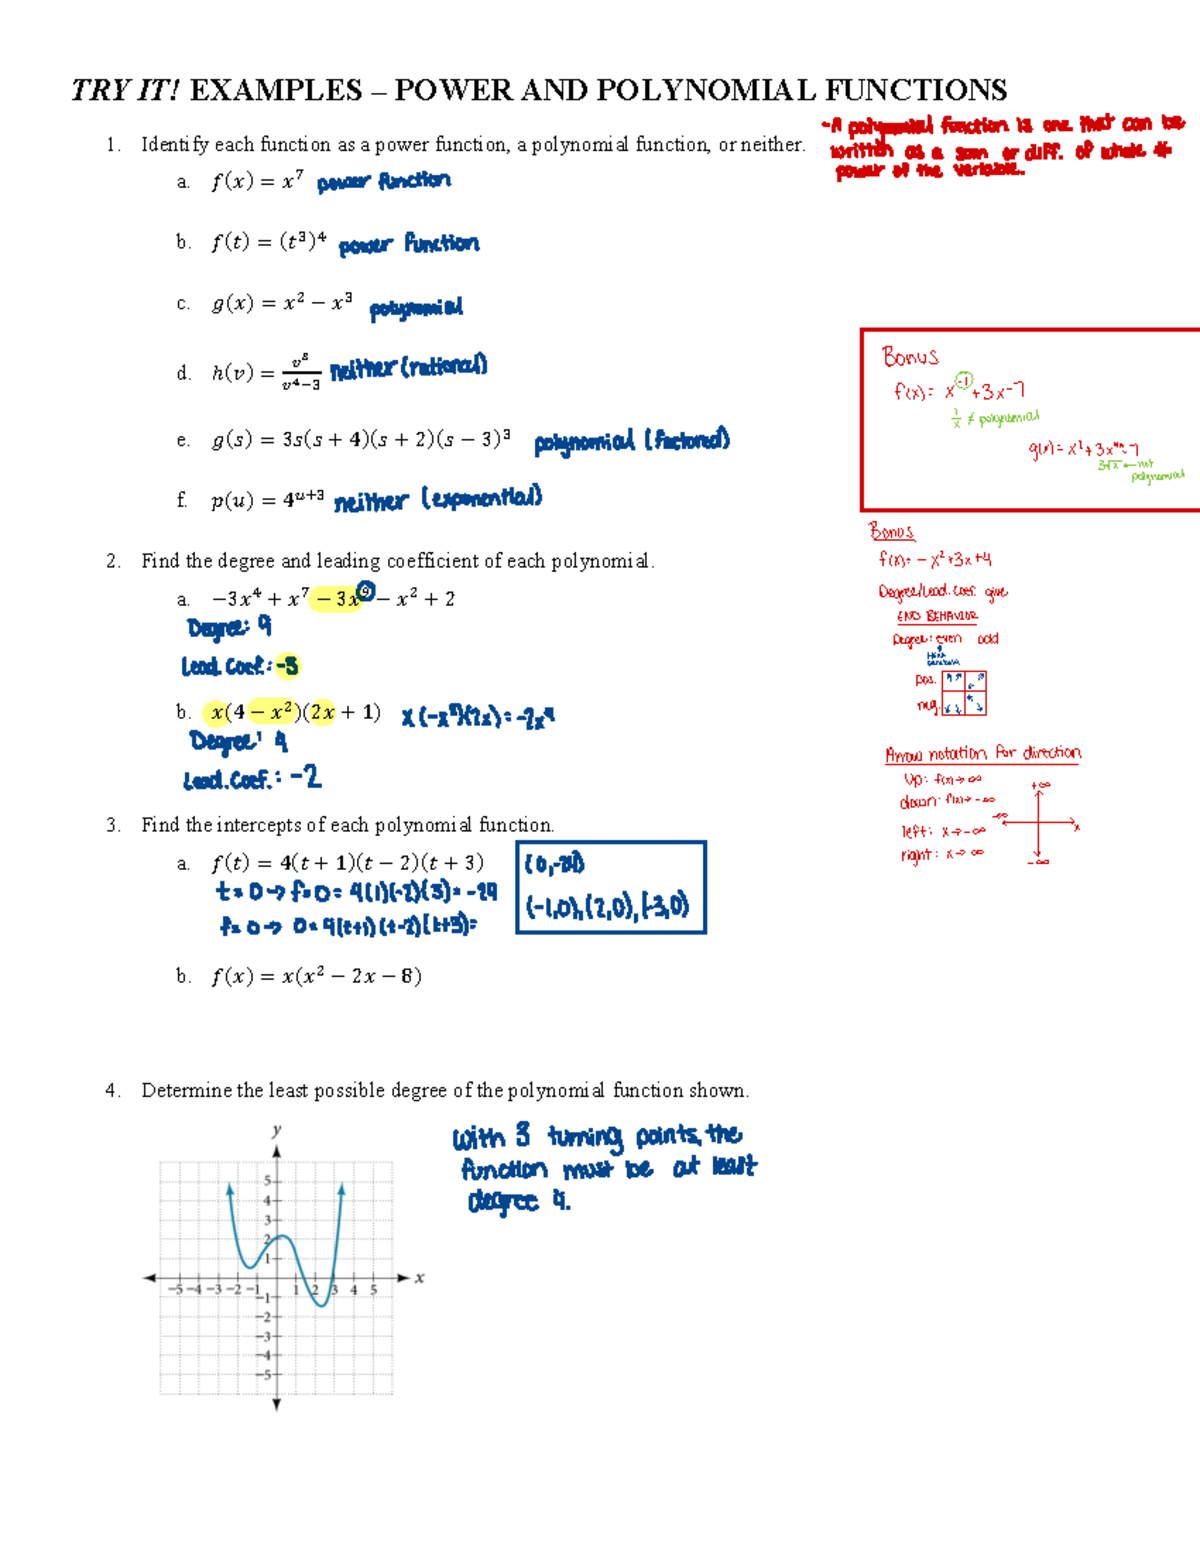 TRY IT! EXAMPLES – POWER AND POLYNOMIAL FUNCTIONS
-A polynomial function is one that can be
written as a sum or diff. of whole #
power of the variable.
1. Identify each function as a power function, a polynomial function, or neither.
a. f(x) = x⁷ power function
b. f(t) = (t³)⁴ power function
c. g(x) = x² − x³ polynomial
d. h(v) = v⁸/(v⁴−3) neither (rational)
e. g(s) = 3s(s + 4)(s + 2)(s − 3)³ polynomial (factored)
f. p(u) = 4ᵘ⁺³ neither (exponential)
Bonus
f(x) = x⁻¹ + 3x − 7
1/x ≠ polynomial
g(x) = x² + 3x − 7
3√x ← not
polynomial
2. Find the degree and leading coefficient of each polynomial.
a. −3x⁴ + x⁷ − 3x⁹ − x² + 2
Degree: 9
Lead. Coef.: -3
b. x(4 − x²)(2x + 1) x(-x²)(2x) = -2x⁴
Degree: 4
Lead. Coef.: -2
Bonus
f(x) = -x² + 3x + 4
Degree/Lead. Coef. give
END BEHAVIOR
Degree: even odd
pos.
neg.
Arrow notation for direction
Up: f(x) → ∞
down: f(x) → -∞
left: x → -∞
right: x → ∞
+∞
-∞
x
-∞
3. Find the intercepts of each polynomial function.
a. f(t) = 4(t + 1)(t − 2)(t + 3)
t = 0 → f = 0 = 4(1)(-2)(3) = -24
f = 0 → 0 = 4(t+1)(t-2)(t+3) =
(0, -24)
(-1,0), (2,0), (-3,0)
b. f(x) = x(x² − 2x − 8)
4. Determine the least possible degree of the polynomial function shown.
With 3 turning points, the
function must be at least
degree 4.
y
5
4
3
2
1
−5 −4 −3 −2 −1 1 2 3 4 5 x
−1
−2
−3
−4
−5